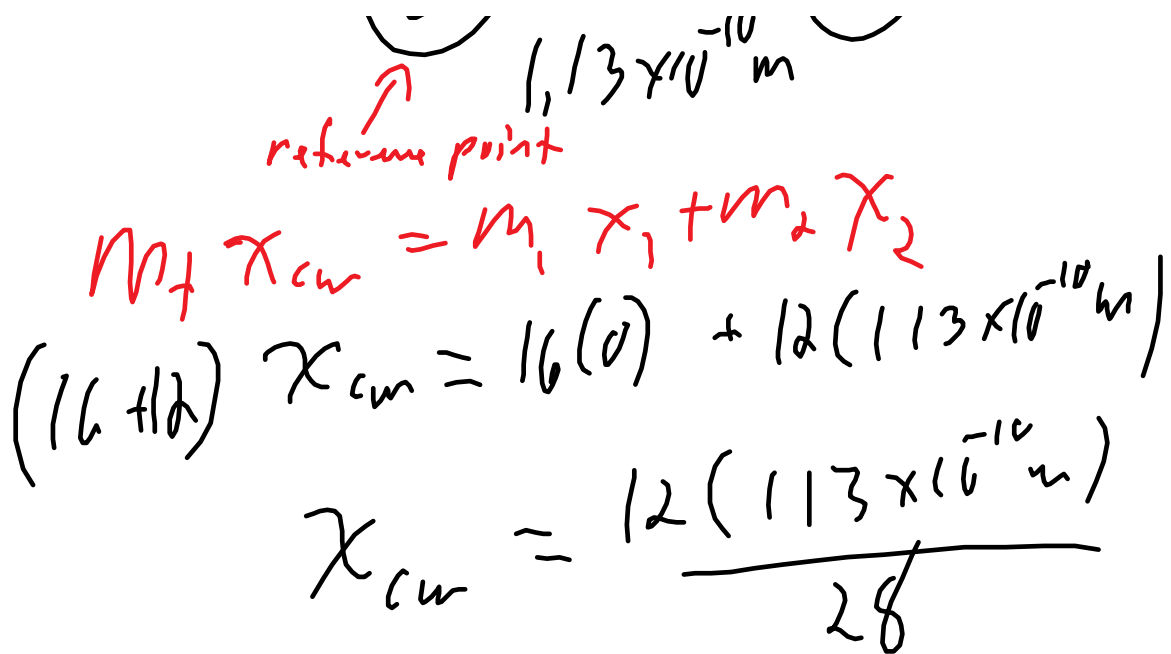 1,13 x10^-10 m
reference point
m_t x_cm = m_1 x_1 + m_2 x_2
(16+12) x_cm = 16(0) + 12(113 x10^-10 m)
x_cm = 12(113 x10^-10 m) / 28